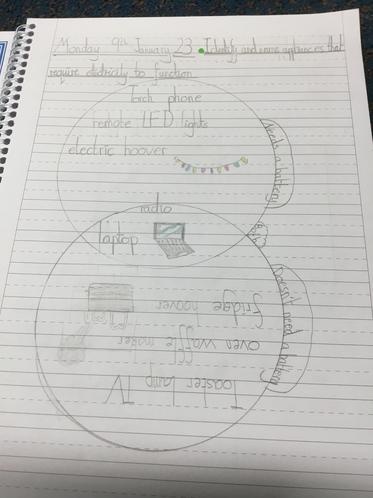 Monday 9th January 23 . Identify and name appliances that
require electricity to function
Torch phone
remote LED lights
electric hoover
Needs a battery
radio
laptop
Both
Doesn't need a battery
Toaster lamp TV
oven waffle maker
fridge hoover